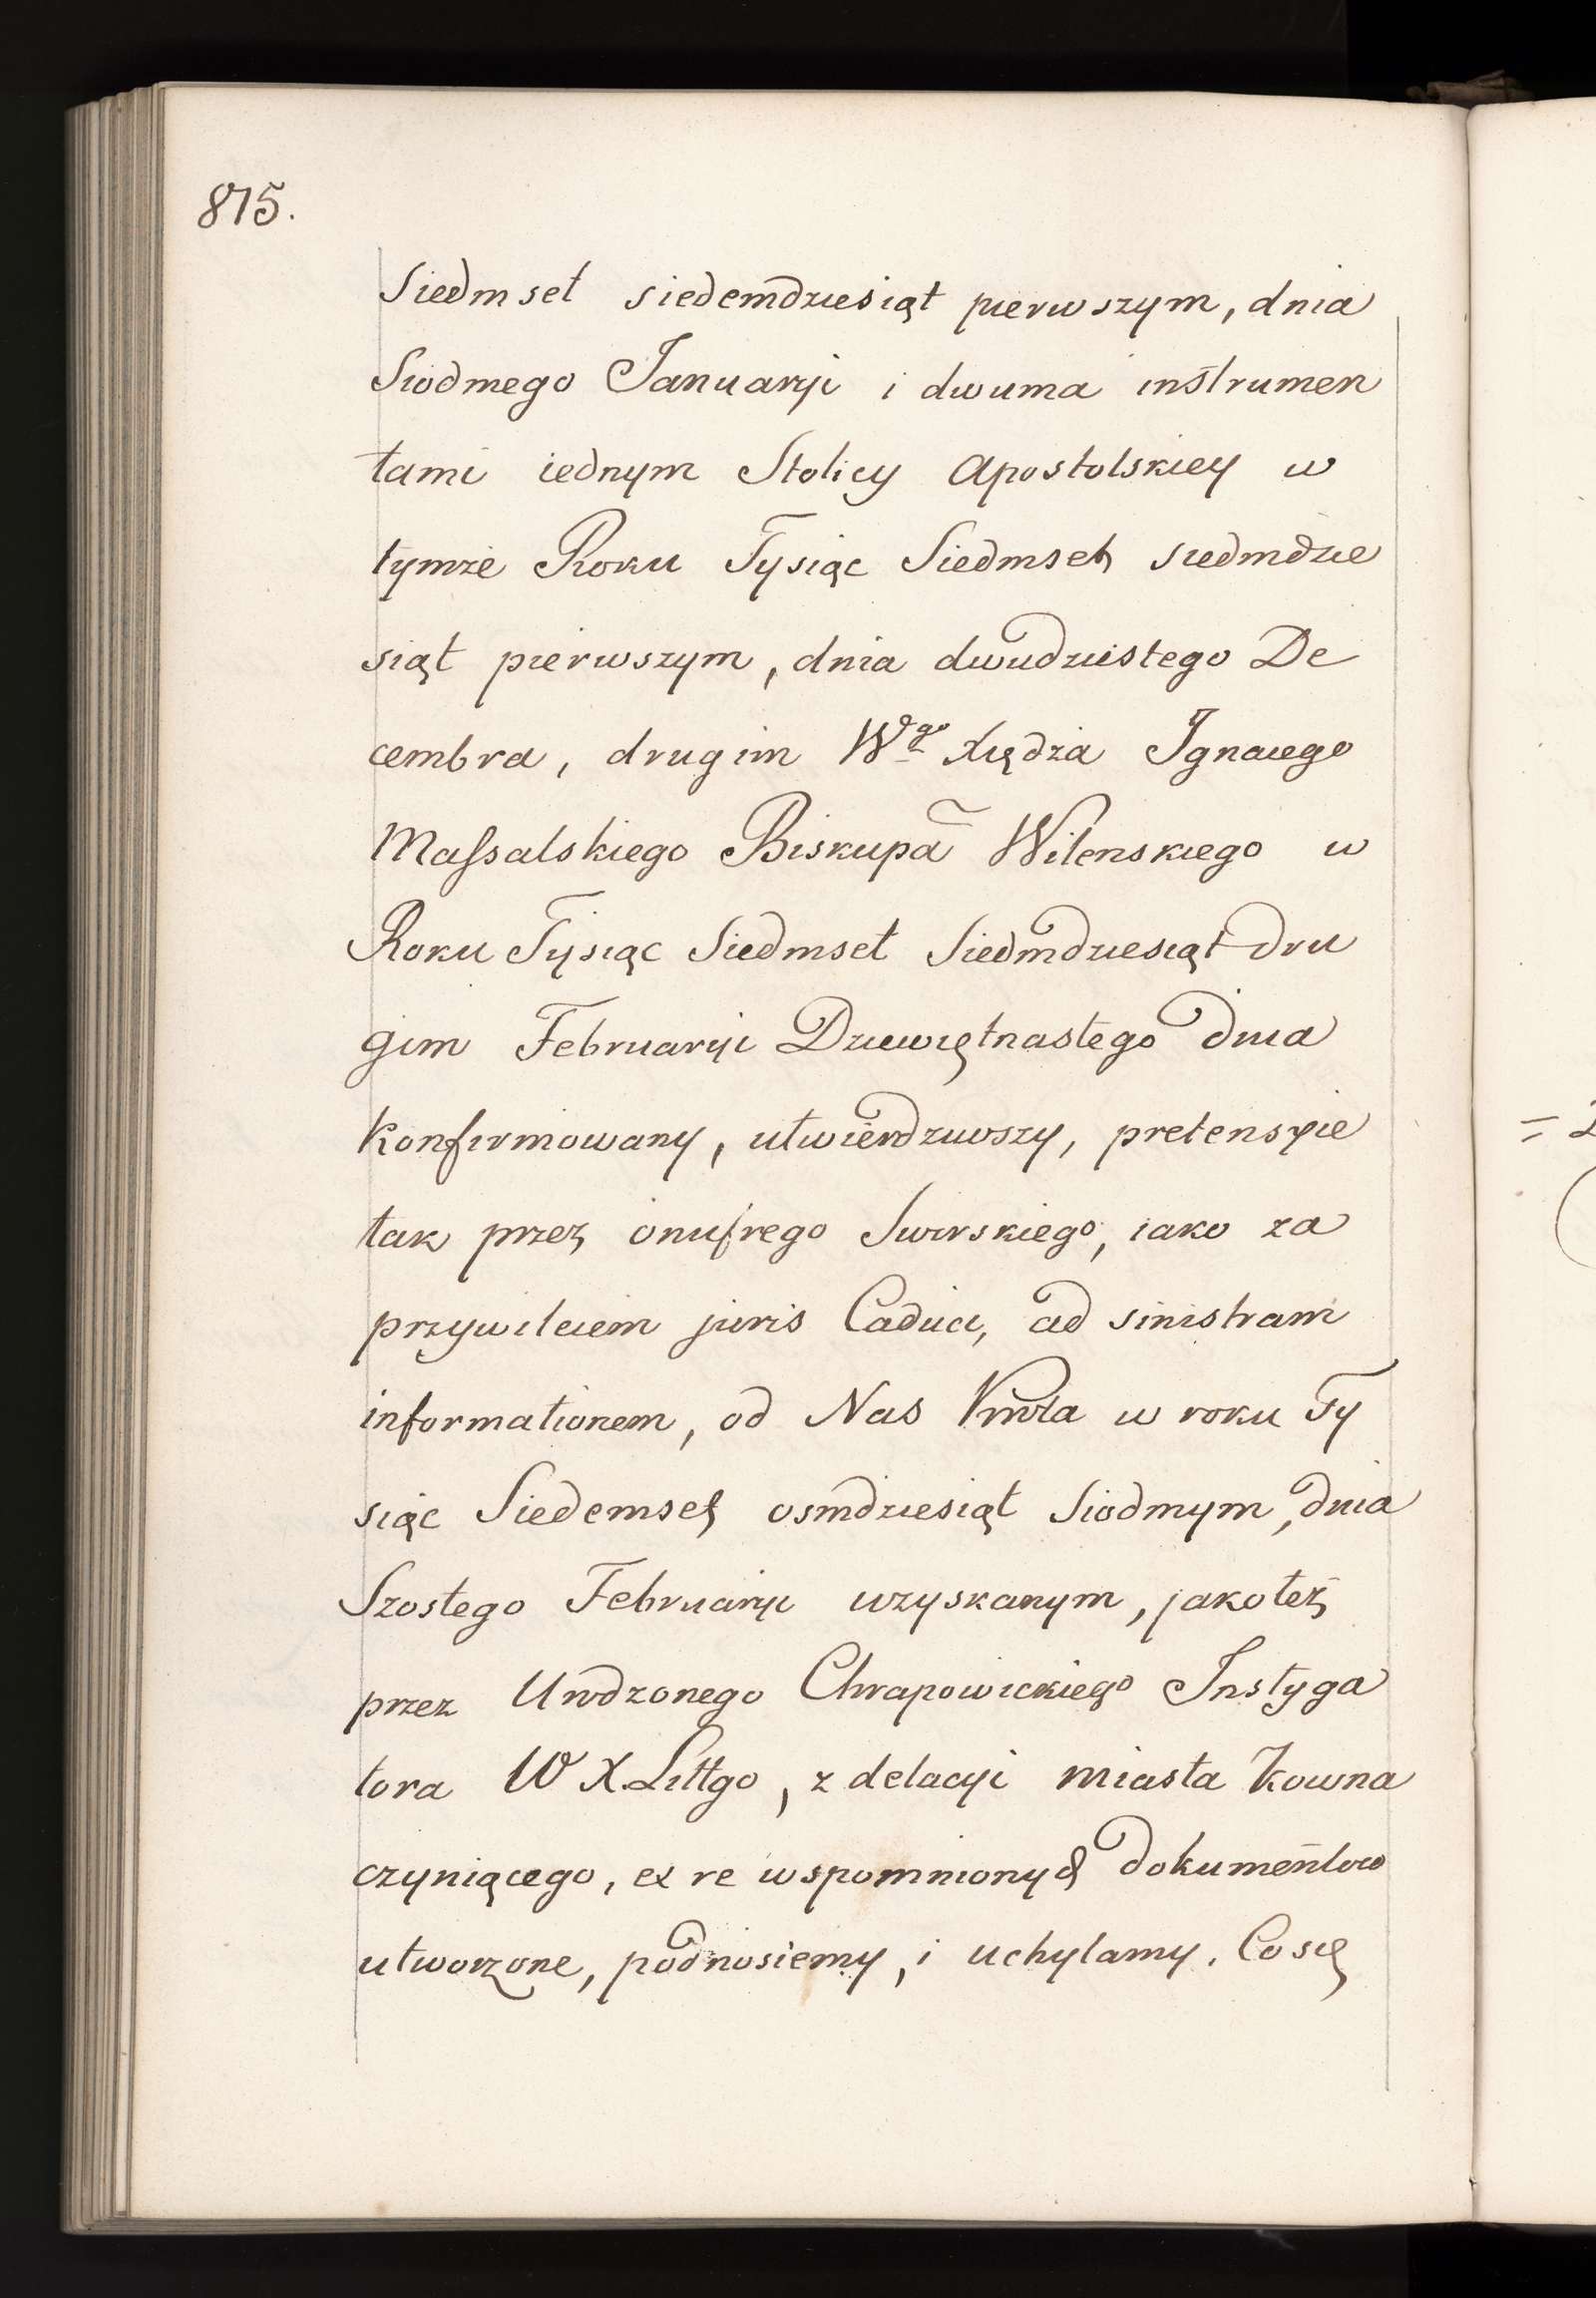 875.
Siedmset siedemdziesiąt pierwszym, dnia
Siodmego Januaryi i dwuma instrumen
tami iednym Stolicy Apostolskiey w
tymże Roku Tysiąc Siedmset siedmdzie
siąt pierwszym, dnia dwudziestego De
cembra, drugim Wgo Xiędza Ignacego
Massalskiego Biskupa Wilenskiego w
Roku Tysiąc Siedmset Siedmdziesiąt dru
gim Februaryi Dziewiętnastego dnia
konfirmowany, utwierdziwszy, pretensyie
tak przez onufrego Swirskiego, iako za
przywileiem juris Caduci, ad sinistram
informationem, od Nas Krola w roku Ty
siąc Siedemset osmdziesiąt Siodmym, dnia
Szostego Februaryi uzyskanym, jakoteż
przez Urodzonego Chrapowickiego Instyga
tora W X Littgo, z delacyi miasta Kowna
czyniącego, ex re wspomnionych dokumentow
utworzone, podnosiemy, i uchylamy. Co się
=